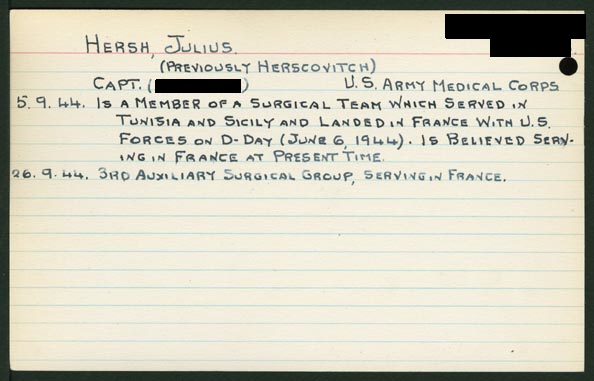 HERSH, JULIUS.
(PREVIOUSLY HERSCOVITCH)
CAPT. ( ) U.S. ARMY MEDICAL CORPS
5.9.44. IS A MEMBER OF A SURGICAL TEAM WHICH SERVED IN
TUNISIA AND SICILY AND LANDED IN FRANCE WITH U.S.
FORCES ON D-DAY (JUNE 6, 1944). IS BELIEVED SERV-
ING IN FRANCE AT PRESENT TIME.
26.9.44. 3RD AUXILIARY SURGICAL GROUP, SERVING IN FRANCE.